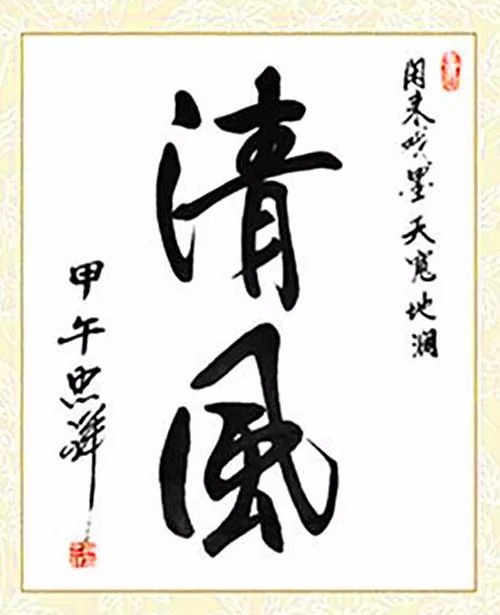 闲来吟墨天宽地阔
清风
甲午忠祥